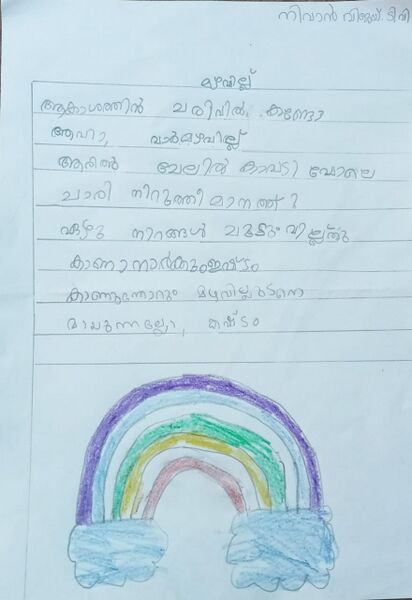 നിവാൻ വിജയ്. ടി വി
മഴവില്ല്
ആകാശത്തിൻ ചരിവിൽ കണ്ടോ
ആഹാ, വാർമഴവില്ല്
കാവടി പോലെ
ചാരി നിറുത്തീ മാനത്ത് ?
ഏഴു നിറങ്ങൾ
കാണാനാർക്കുംഇഷ്ടം
കാണുന്തോറും മഴവില്ലുടനെ
മായുന്നല്ലോ, കഷ്ടം